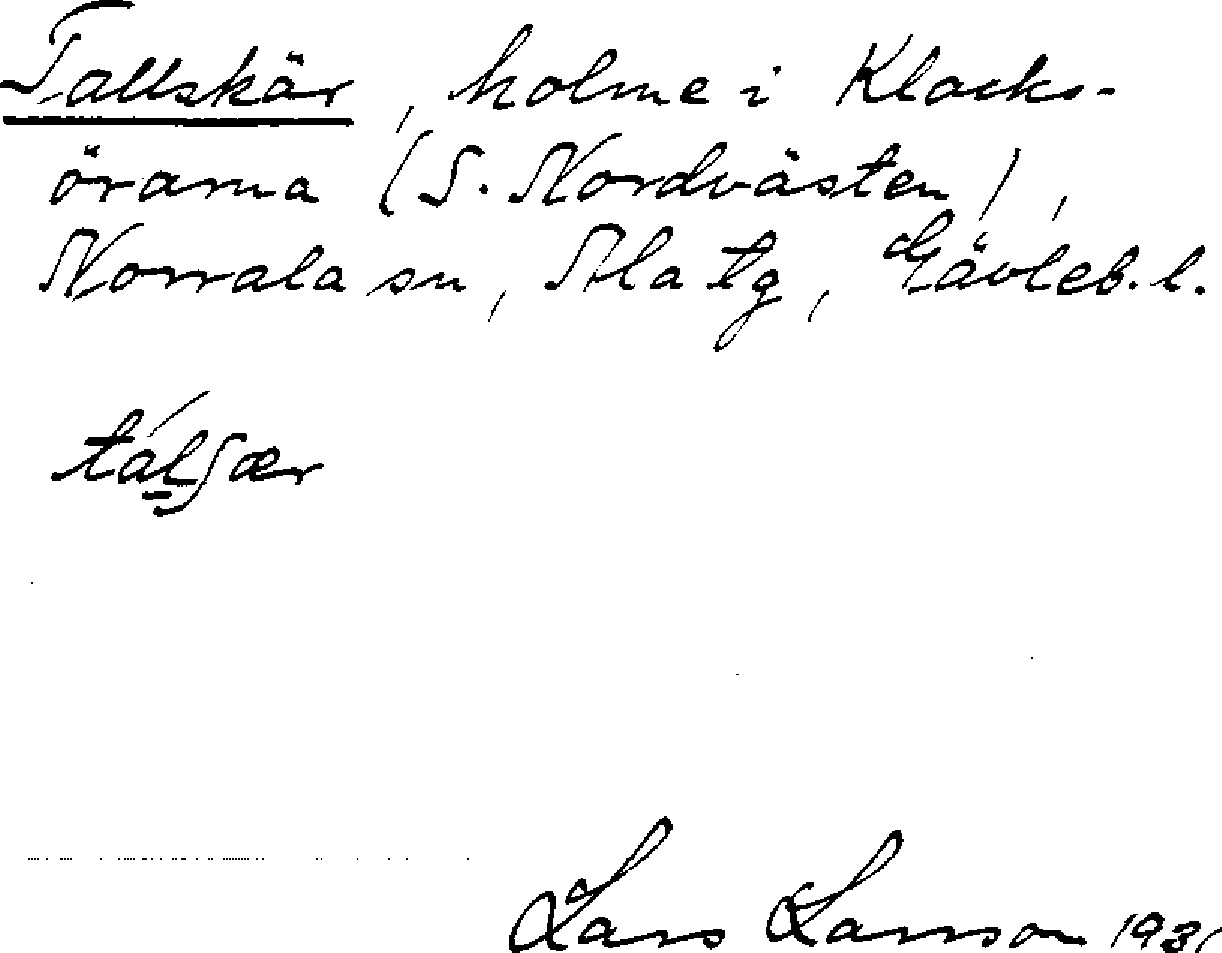 Tallskär, holme i Klacks-
örarna (S. Nordvästen),
Norrala sn, Ala tg, Gävleb. l.
tálʃær
Lars Larsson 1931